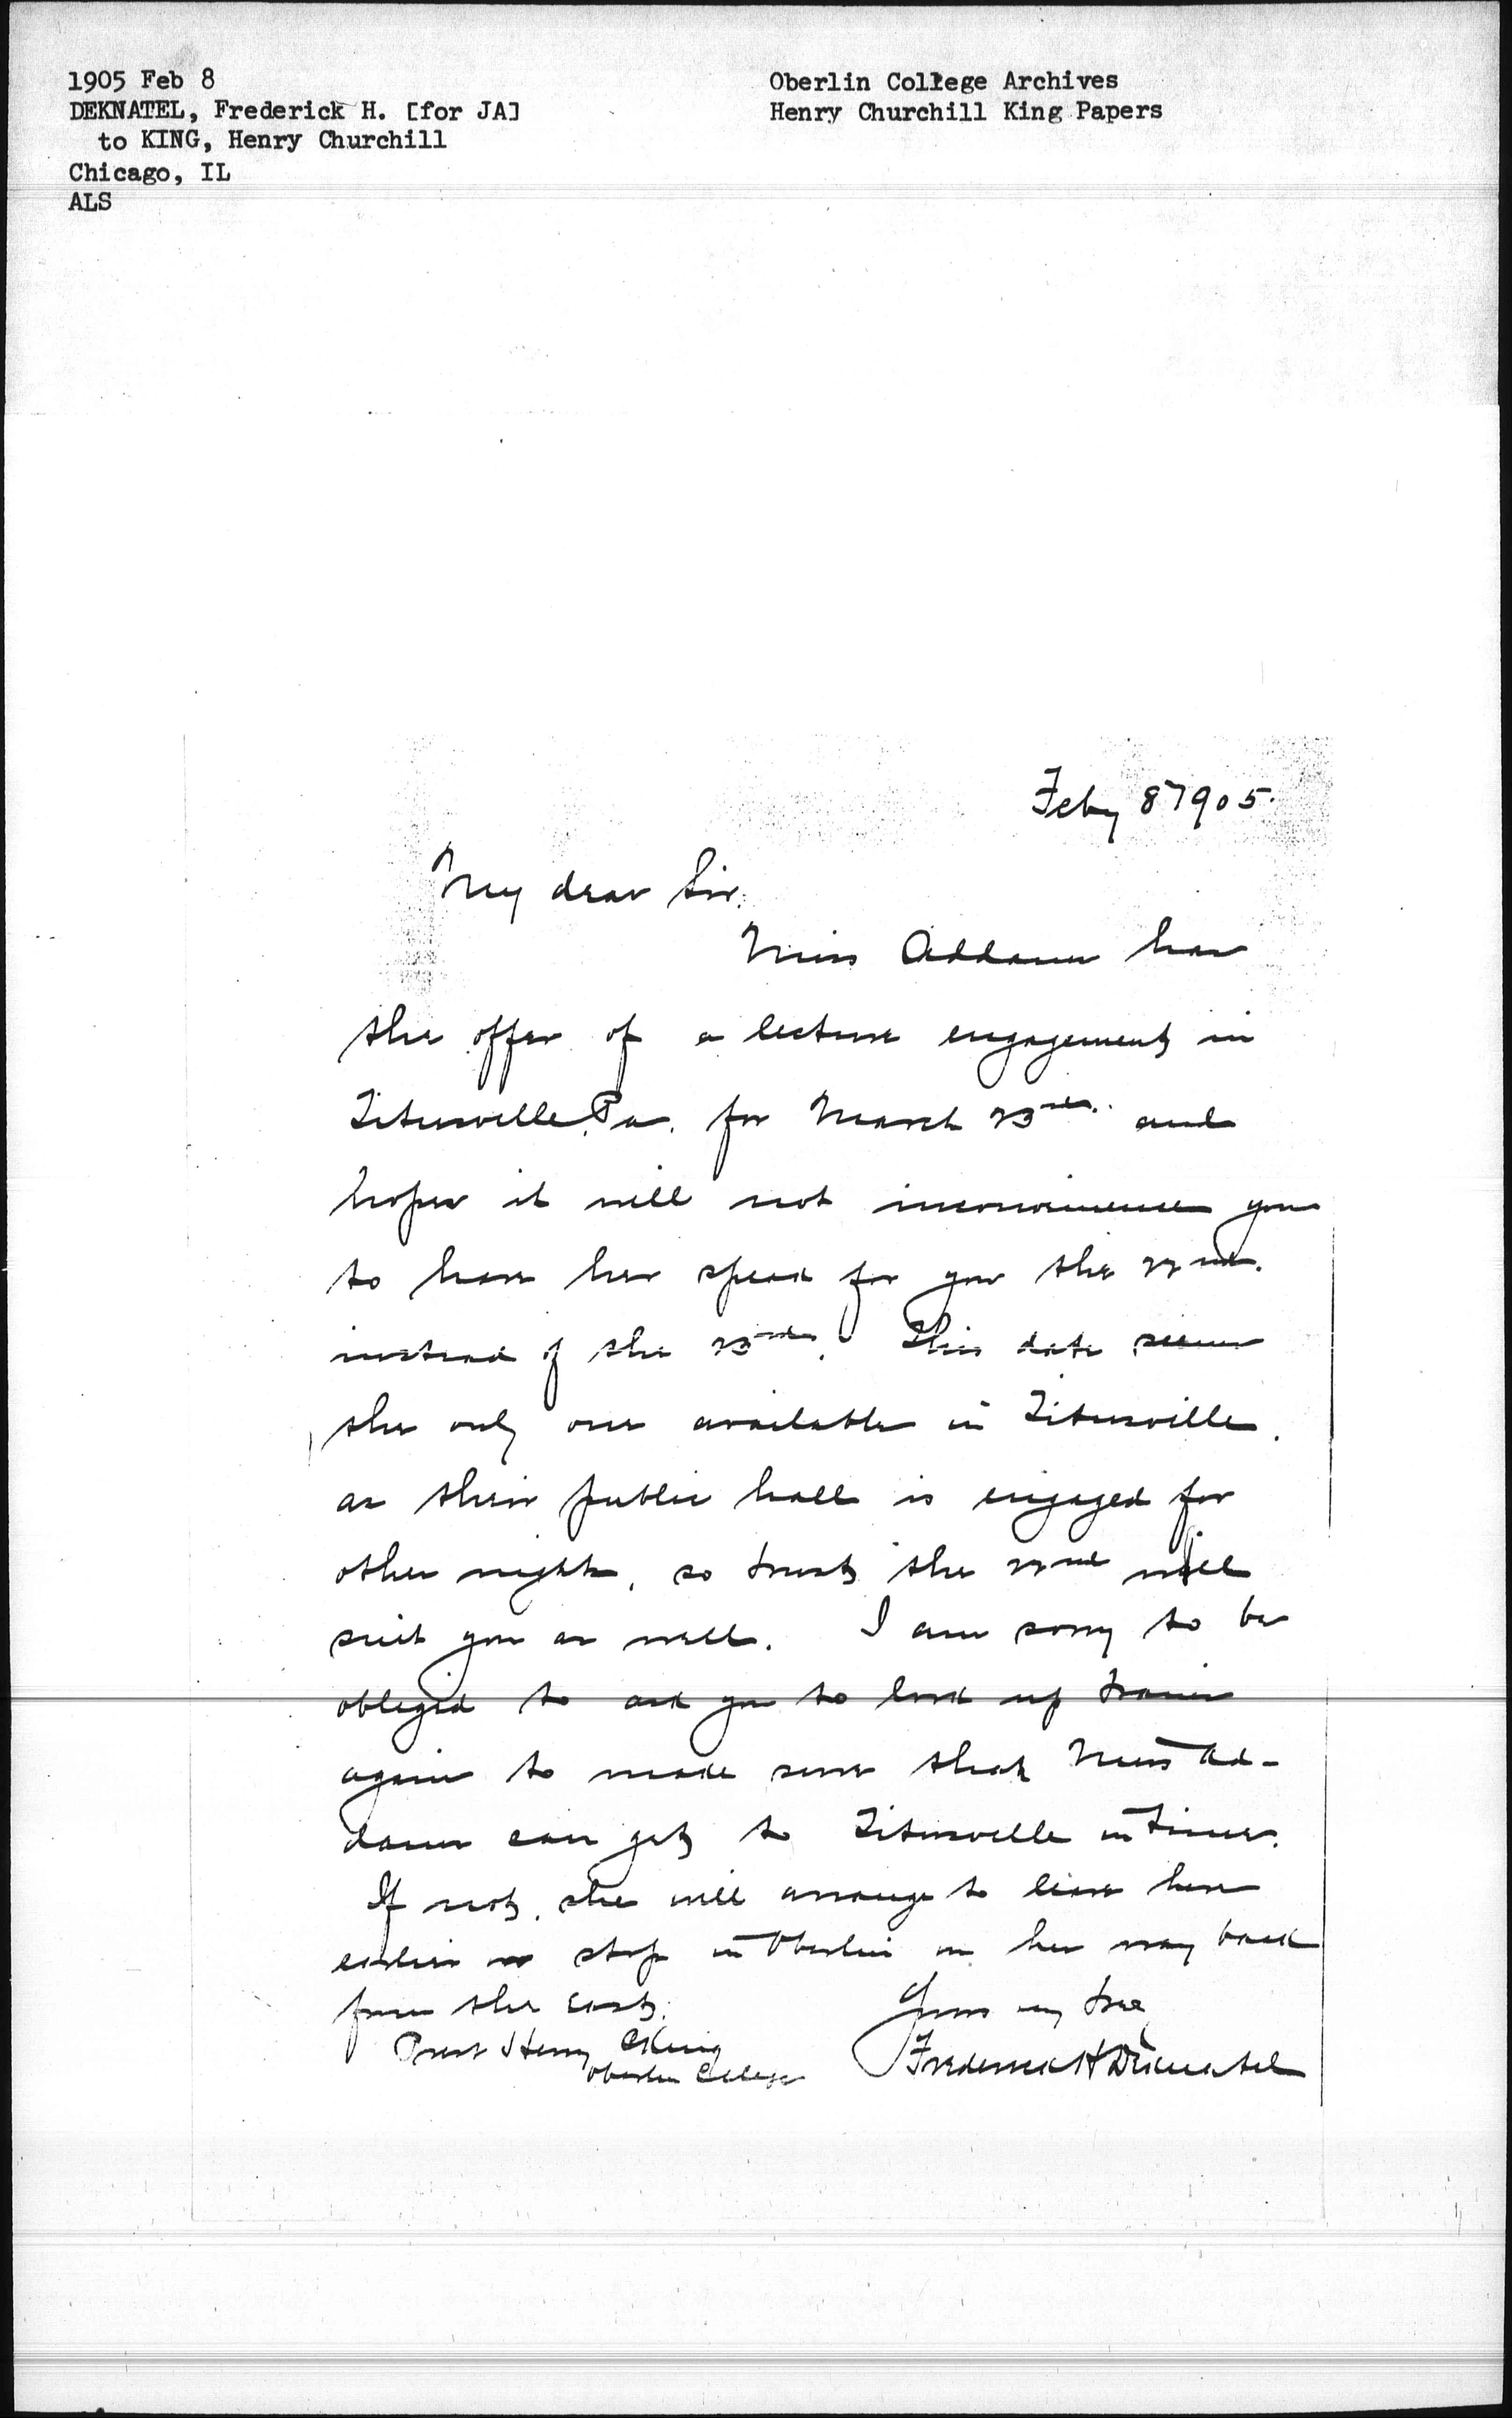 1905 Feb 8
DEKNATEL, Frederick H. [for JA]
to KING, Henry Churchill
Chicago, IL
ALS
Oberlin College Archives
Henry Churchill King Papers
Feby 8 1905.
My dear Sir.
Miss Addams has
the offer of a lecture engagement in
Titusville, Pa. for March 23rd. and
hopes it will not inconvenience you
to have her speak for you the 22nd.
instead of the 23rd. This date seems
the only one available in Titusville.
as their public hall is engaged for
other nights, so trust the 22nd will
suit you as well. I am sorry to be
obliged to ask you to look up trains
again to make sure that Miss Ad-
dams can get to Titusville in time.
If not, she will arrange to leave here
earlier or stop in Oberlin on her way back
from the East.
Yours very truly
Frederick H Deknatel
Prest Henry C King
Oberlin College